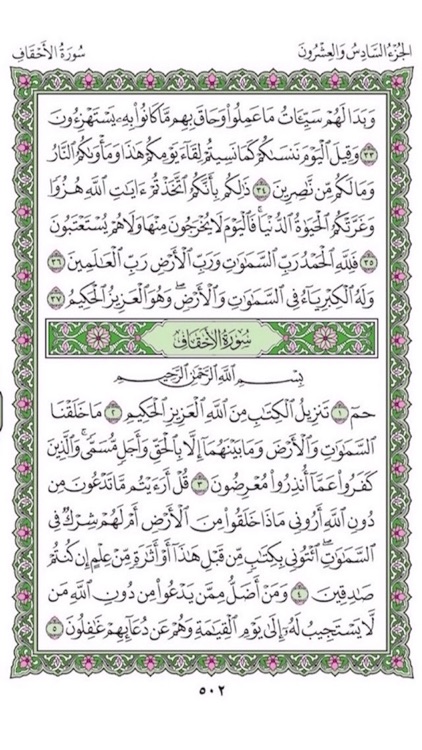 سورة الأحقاف الجزء السادس والعشرون
وَبَدَا لَهُمْ سَيِّـَٔاتُ مَا عَمِلُوا۟ وَحَاقَ بِهِم مَّا كَانُوا۟ بِهِۦ يَسْتَهْزِءُونَ
٣٣ وَقِيلَ ٱلْيَوْمَ نَنسَىٰكُمْ كَمَا نَسِيتُمْ لِقَآءَ يَوْمِكُمْ هَٰذَا وَمَأْوَىٰكُمُ ٱلنَّارُ
وَمَا لَكُم مِّن نَّٰصِرِينَ ٣٤ ذَٰلِكُم بِأَنَّكُمُ ٱتَّخَذْتُمْ ءَايَٰتِ ٱللَّهِ هُزُوًا
وَغَرَّتْكُمُ ٱلْحَيَوٰةُ ٱلدُّنْيَا ۚ فَٱلْيَوْمَ لَا يُخْرَجُونَ مِنْهَا وَلَا هُمْ يُسْتَعْتَبُونَ
٣٥ فَلِلَّهِ ٱلْحَمْدُ رَبِّ ٱلسَّمَٰوَٰتِ وَرَبِّ ٱلْأَرْضِ رَبِّ ٱلْعَٰلَمِينَ ٣٦
وَلَهُ ٱلْكِبْرِيَآءُ فِى ٱلسَّمَٰوَٰتِ وَٱلْأَرْضِ ۖ وَهُوَ ٱلْعَزِيزُ ٱلْحَكِيمُ ٣٧
سورة الأحقاف
بِسْمِ ٱللَّهِ ٱلرَّحْمَٰنِ ٱلرَّحِيمِ
حمٓ ١ تَنزِيلُ ٱلْكِتَٰبِ مِنَ ٱللَّهِ ٱلْعَزِيزِ ٱلْحَكِيمِ ٢ مَا خَلَقْنَا
ٱلسَّمَٰوَٰتِ وَٱلْأَرْضَ وَمَا بَيْنَهُمَآ إِلَّا بِٱلْحَقِّ وَأَجَلٍ مُّسَمًّى ۚ وَٱلَّذِينَ
كَفَرُوا۟ عَمَّآ أُنذِرُوا۟ مُعْرِضُونَ ٣ قُلْ أَرَءَيْتُم مَّا تَدْعُونَ مِن
دُونِ ٱللَّهِ أَرُونِى مَاذَا خَلَقُوا۟ مِنَ ٱلْأَرْضِ أَمْ لَهُمْ شِرْكٌ فِى
ٱلسَّمَٰوَٰتِ ۖ ٱئْتُونِى بِكِتَٰبٍ مِّن قَبْلِ هَٰذَآ أَوْ أَثَٰرَةٍ مِّنْ عِلْمٍ إِن كُنتُمْ
صَٰدِقِينَ ٤ وَمَنْ أَضَلُّ مِمَّن يَدْعُوا۟ مِن دُونِ ٱللَّهِ مَن
لَّا يَسْتَجِيبُ لَهُۥٓ إِلَىٰ يَوْمِ ٱلْقِيَٰمَةِ وَهُمْ عَن دُعَآئِهِمْ غَٰفِلُونَ ٥
٥٠٢